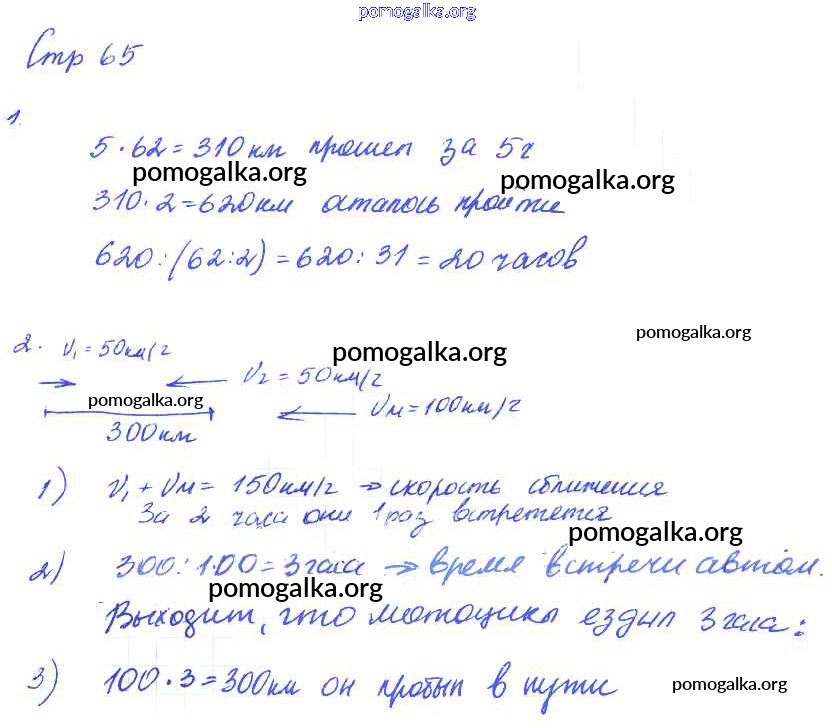 pomogalka.org
Стр 65
1.
5 · 62 = 310 км прошел за 5ч
pomogalka.org pomogalka.org
310 · 2 = 620 км аталось пройти
620 : (62:2) = 620 : 31 = 20 часов
2. V₁ = 50км/ч pomogalka.org pomogalka.org
V₂ = 50км/ч
pomogalka.org Vм = 100км/ч
300км
1) V₁ + Vм = 150км/ч → скорость сближения
За 2 часа они 1 раз встретется
pomogalka.org
2) 300 : 100 = 3 часа → время встречи автом.
pomogalka.org
Выходит, что мотоцикл ездил 3 часа:
3) 100 · 3 = 300км он пробыл в пути
pomogalka.org